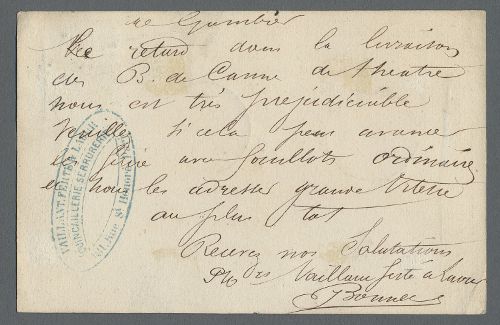 de Gombier
Le retard dans la livraison
des B. de Canne de theatre
nous est très prejudiciable
Veuillez si cela peut avancer
les faire avec fouillots ordinaire
et nous les adresser grande Vitesse
au plus tot
Recevez nos Salutations
Vaillant Ferté &
Bonnec
VAILLANT, FERTÉ &
QUINCAILLERIE SERRURERIE
Rue St Honoré